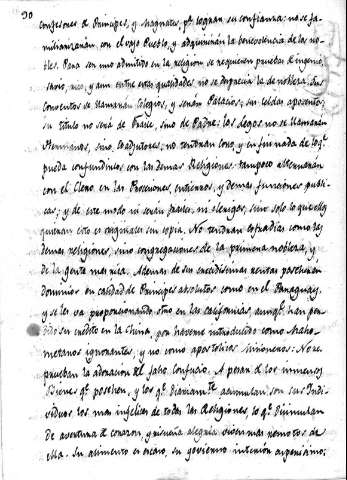 90
confesores de Principes, y Magnates, pª lograr su confianza: no se fa-
miliarizarán, con el vajo Pueblo, y adquirirán la benevolencia de los no-
bles. Para ser uno admitido en la religion, se requieren pruebas de ingenio,
savio, rico, y aun entre estas qualidades no se despacia la de nobleza. Sus
conventos se llamarán Colegios, y serán Palacios, sin celdas, aposentos;
su titulo no será de Fraile, sino de Padre: los legos no se llamarán
Hermanos, sino Coadjutores; no tendran Coro, y en fin nada de lo qe.
pueda confundirlos con las demas Religiones. tampoco alternarán
con el Clero en las Procesiones, entierros, y demas funciones publi-
cas; y de este modo ni serán frailes, ni clerigos, sino solo lo que ellos
quieran esto es originales sin copia. No tendran cofradias como las
demas religiones, sino congregaciones de la primera nobleza, y
de la gente mas rica. Ademas de sus excesivas rentas poseheran
dominios en calidad de Principes absolutos como en el Paraguay,
y se les va proporcionando otro en las californias, aunqe. han per-
dido su credito en la China, por haverse introducido como Maho-
metanos ignorantes, y no como apostolicos misioneros: No re-
prueban la adoracion del falso confucio. A pesar de los inmensos
Bienes qe. posehen, y los qe. diariamte. acumulan, son sus Indi-
viduos los mas infelices de todas las Religiones, lo qe. disimulan
de aventura de corazon, y risueña alegria viven mas remotos de
ella. Su alimento es escaso, su govierno interior asperisimo;